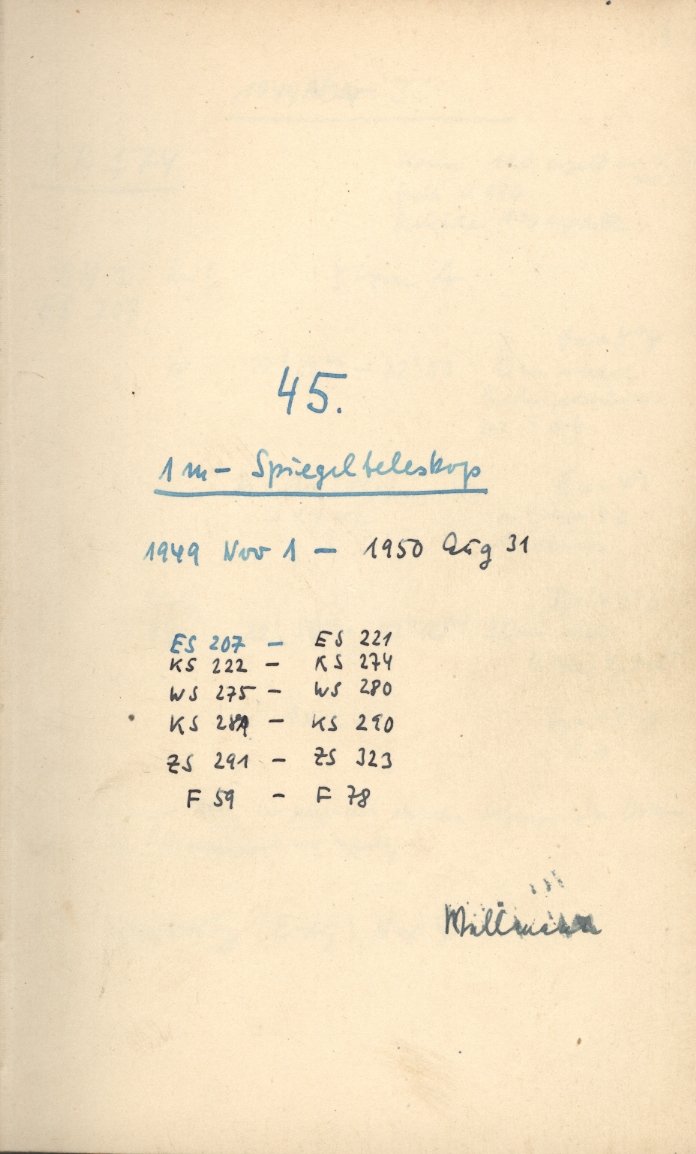 45.
1 m – Spiegelteleskop
1949 Nov 1 – 1950 Aug 31
ES 207 – ES 221
KS 222 – KS 274
WS 275 – WS 280
KS 281 – KS 290
ZS 291 – ZS 323
F 59 – F 78